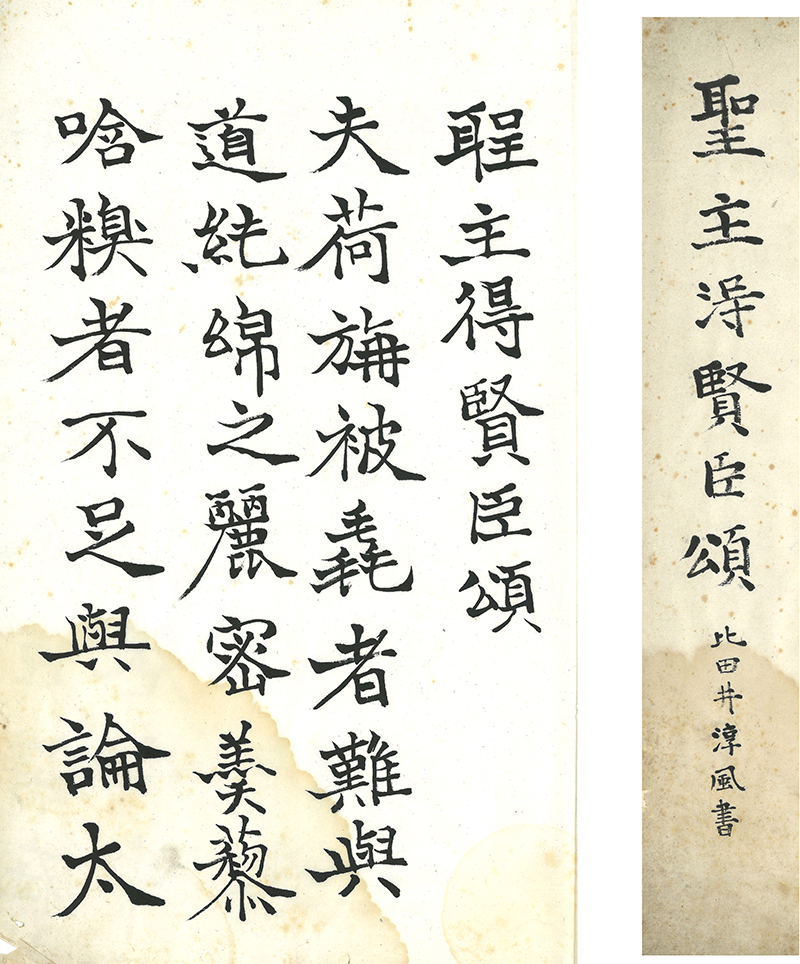 聖主得賢臣頌 比田井淳風書
聖主得賢臣頌
夫荷旃被毳者難與
道純綿之麗密羹藜
唅糗者不足與論太